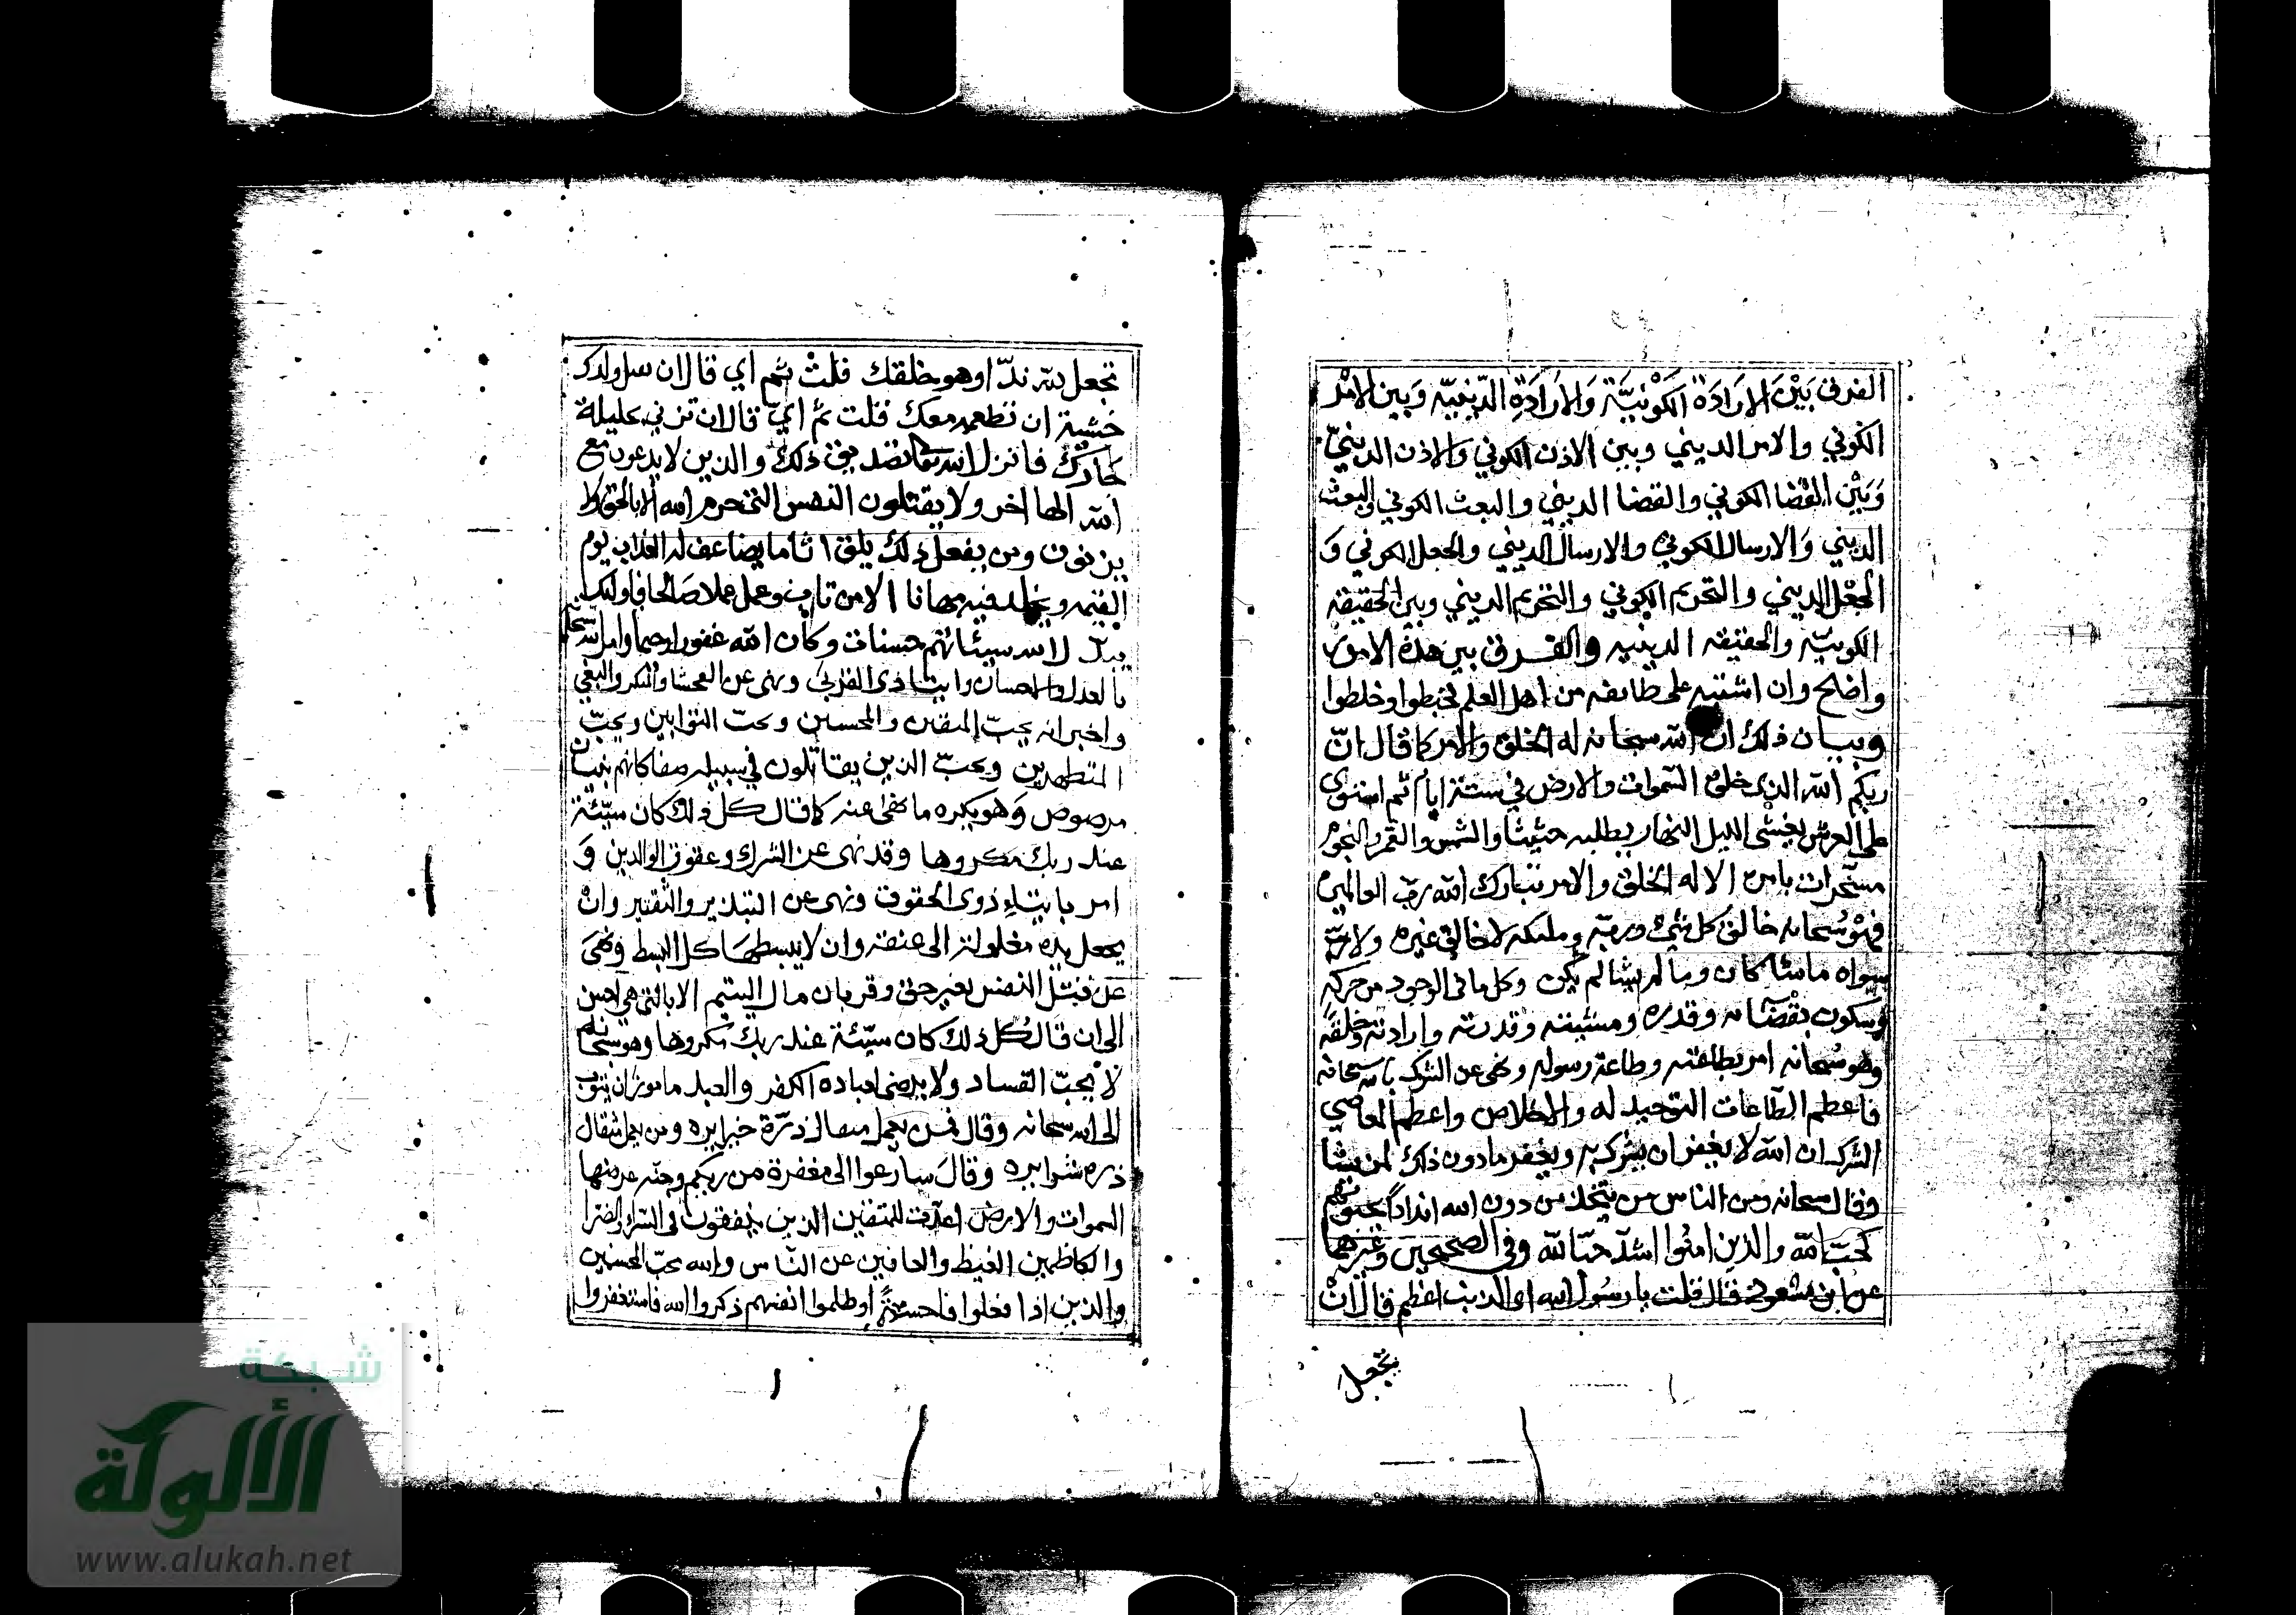 الفرق بَيْنَ الارَادَة الكَوْنيَّة وَالارَادَةِ الدّينيّه وَبين الامْر
الكوني والامر الديني وبين الاذن الكوني والاذن الدينيّ
وَبَيْن القضا الكوني والقضا الديني والبعث الكوني والبعث
الديني وَالارسال الكوني والارسال الديني والجعل الكوني وَ
الجعْل الديني والتحريم الكوني والتحريم الديني وبين الحقيقه
الكونيّه والحقيقه الدينيه والفرق بين هذه الامور
واضح وان اشتبه على طائفه من اهل العلم فخبطوا وخلطوا
وبيان ذلك ان الله سبحانه له الخلق والامر كما قال انّ
ربكم الله الذى خلق السّموات والارض في ستة ايام ثم استوى
على العرش يغشى الليل النهار يطلبه حثيثا والشمس والقمر والنجوم
مسخّرات بامره الا له الخلق والامر تبارك الله ربّ العالمين
فهْو سُبحانه خالق كل شيء وربّه ومليكه لا خالق غيره ولا ربّ
سواه ما شا كان وما لم يشا لم يكن وكل ما في الوجود من حركه
وسكون بقضائه وقدره ومشيئته وقدرته وارادته وخلقه
وهو سُبحانه امر بطاعته وطاعة رسوله ونهى عن الشرك به سبحانه
فاعظم الطّاعات التوحيد له والاخلاص واعظم المعاصي
الشرك ان الله لا يغفر ان يشرك به ويغفر ما دون ذلك لمن يشا
وقال سبحانه ومن الناس من يتّخذ من دون الله انداداً يحبّونهم
كحبّ الله والذين امنُوا اشدّ حبّا لله وفي الصحيحين وغيرهما
عن ابن مسْعود قال قلت يا رسُول الله اى الذنب اعظم قال انْ
تجْعل
تجعل لله ندّا وهو خلقك قلتْ ثم اي قال ان تقتل ولدك
خشية ان تطعمه معك قلت ثم ايّ قال ان تزني بحليلة
جارك فانزل الله تعالى تصديق ذلك والذين لا يدعون مع
الله الها اخر ولا يقتلون النفس التي حرم الله الا بالحق ولا
يزنون ومن يفعل ذلك يلق اثاما يضاعف له العذاب يوم
القيمه ويخلد فيه مهانا الا من تاب وعمل عملا صَالحا فاولئك
يبدّل الله سيئاتهم حسنات وكان الله غفورا رحيما وامر الله سبحانه
بالعدل والاحسان وايتا ذى القربى ونهى عن الفحشا والمنكر والبغي
واخبر انه يحبّ المتقين والمحسنين ويحبّ التوابين ويحبّ
المتطهرين ويحبّ الذين يقاتلون في سبيله صفا كانهم بنيان
مرصوص وَهو يكره ما نهى عنه كما قال كل ذلك كان سيّئة
عند ربك مكروها وقد نهى عن الشرك وعقوق الوالدين وَ
امر بايتاءِ ذوى الحقوق ونهى عن التبذير والتّقتير وانْ
يجعل يده مغلولة الى عنقه وان لا يبسطهَا كل البسط ونهىَ
عن قتل النفس بغير حق وقربان مال اليتيم الا بالتي هي احسن
الى ان قال كُل ذلك كان سيّئة عند ربك مكروها وهو سبحانه
لا يحبّ الفساد ولا يرضى لعباده الكفر والعبد مامور ان يتوب
الى الله سبحانه وقال فمن يعمل مثقال ذرّة خيرا يره ومن يعمل مثقال
ذره شرا يره وقالَ سارعوا الى مغفرة من ربكم وجنّه عرضها
السموات والارض اعدّت للمتقين الذين ينفقون في السّراء والضرا
والكاظمين الغيظ والعافين عن النّاس والله يحبّ المحسنين
والذين اذا فعلوا فاحشةً او ظلموا انفسهم ذكروا الله فاستغفروا
شبكة
الألوكة
www.alukah.net